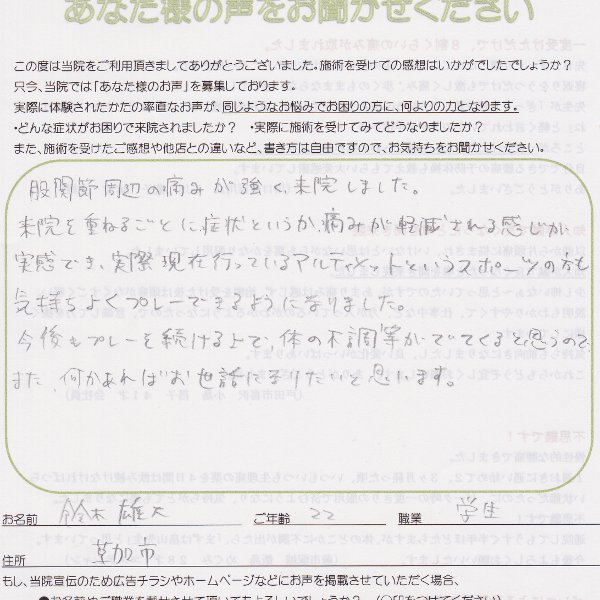 あなた様の声をお聞かせください
この度は当院をご利用頂きましてありがとうございました。施術を受けての感想はいかがでしたでしょうか？
只今、当院では「あなた様のお声」を募集しております。
実際に体験されたかたの率直なお声が、同じようなお悩みでお困りの方に、何よりの力となります。
・どんな症状がお困りで来院されましたか？　・実際に施術を受けてみてどうなりましたか？
また、施術を受けたご感想や他店との違いなど、書き方は自由ですので、お気持ちをお聞かせください。
股関節周辺の痛みが強く来院しました。
来院を重ねるごとに症状というか、痛みが軽減される感じが
実感でき、実際現在行っているアルティメットというスポーツの方も
気持ちよくプレーできるようになりました。
今後もプレーを続ける上で、体の不調等がでてくると思うので
また、何かあればお世話になりたいと思います。
お名前 鈴木雄大 ご年齢 22 職業 学生
住所 草加市
もし、当院宣伝のため広告チラシやホームページなどにお声を掲載させていただく場合、